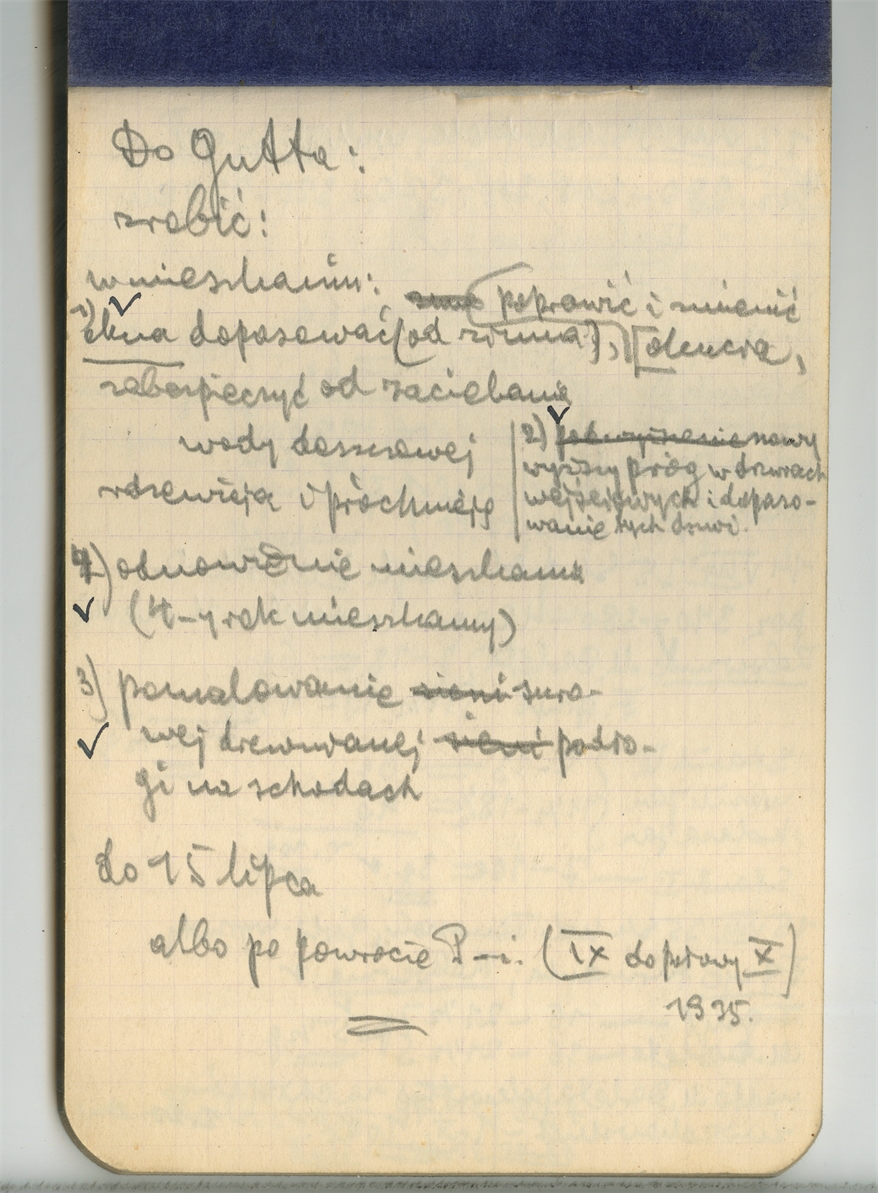 Do Gutta:
zrobić:
w mieszkaniu:
poprawić i zmienić
1) okna dopasować (od zimna), [okucia,
zabezpieczyć od zaciekania
wody deszczowej
rdzewieją i próchnieją
2) podwyższenie nowy
wyższy próg w drzwiach
wejściowych i dopaso-
wanie tych drzwi.
4) odnowienie mieszkania
(4-y rok mieszkamy)
3) pomalowanie sieni suro-
wej drewnianej sieni podło-
gi na schodach
do 15 lipca
albo po powrocie P-i. (IX do połowy X)
1935.